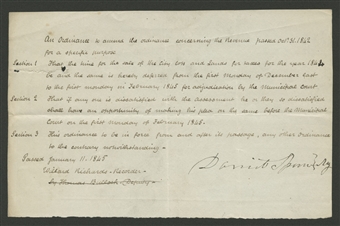 An Ordinance to amend the ordinance concerning the Revenue passed Oct. 31. 1842
for a specific purpose
Section 1 That the time for the sale of the City lots and lands for taxes for the year 1844
be and the same is hereby deferred from the first monday of December last
to the first monday in February 1845 for adjudication by the Municipal Court
Section 2 That if any one is dissatisfied with the assessment he or they so dissatisfied
shall have an opportunity of making his plea on the same before the Municipal
Court on the first monday of February 1845.
Section 3 This ordinance to be in force from and after its passage, any other Ordinance
to the contrary notwithstanding.
Passed January 11. 1845
Willard Richards Recorder
By Thomas Bullock, Deputy